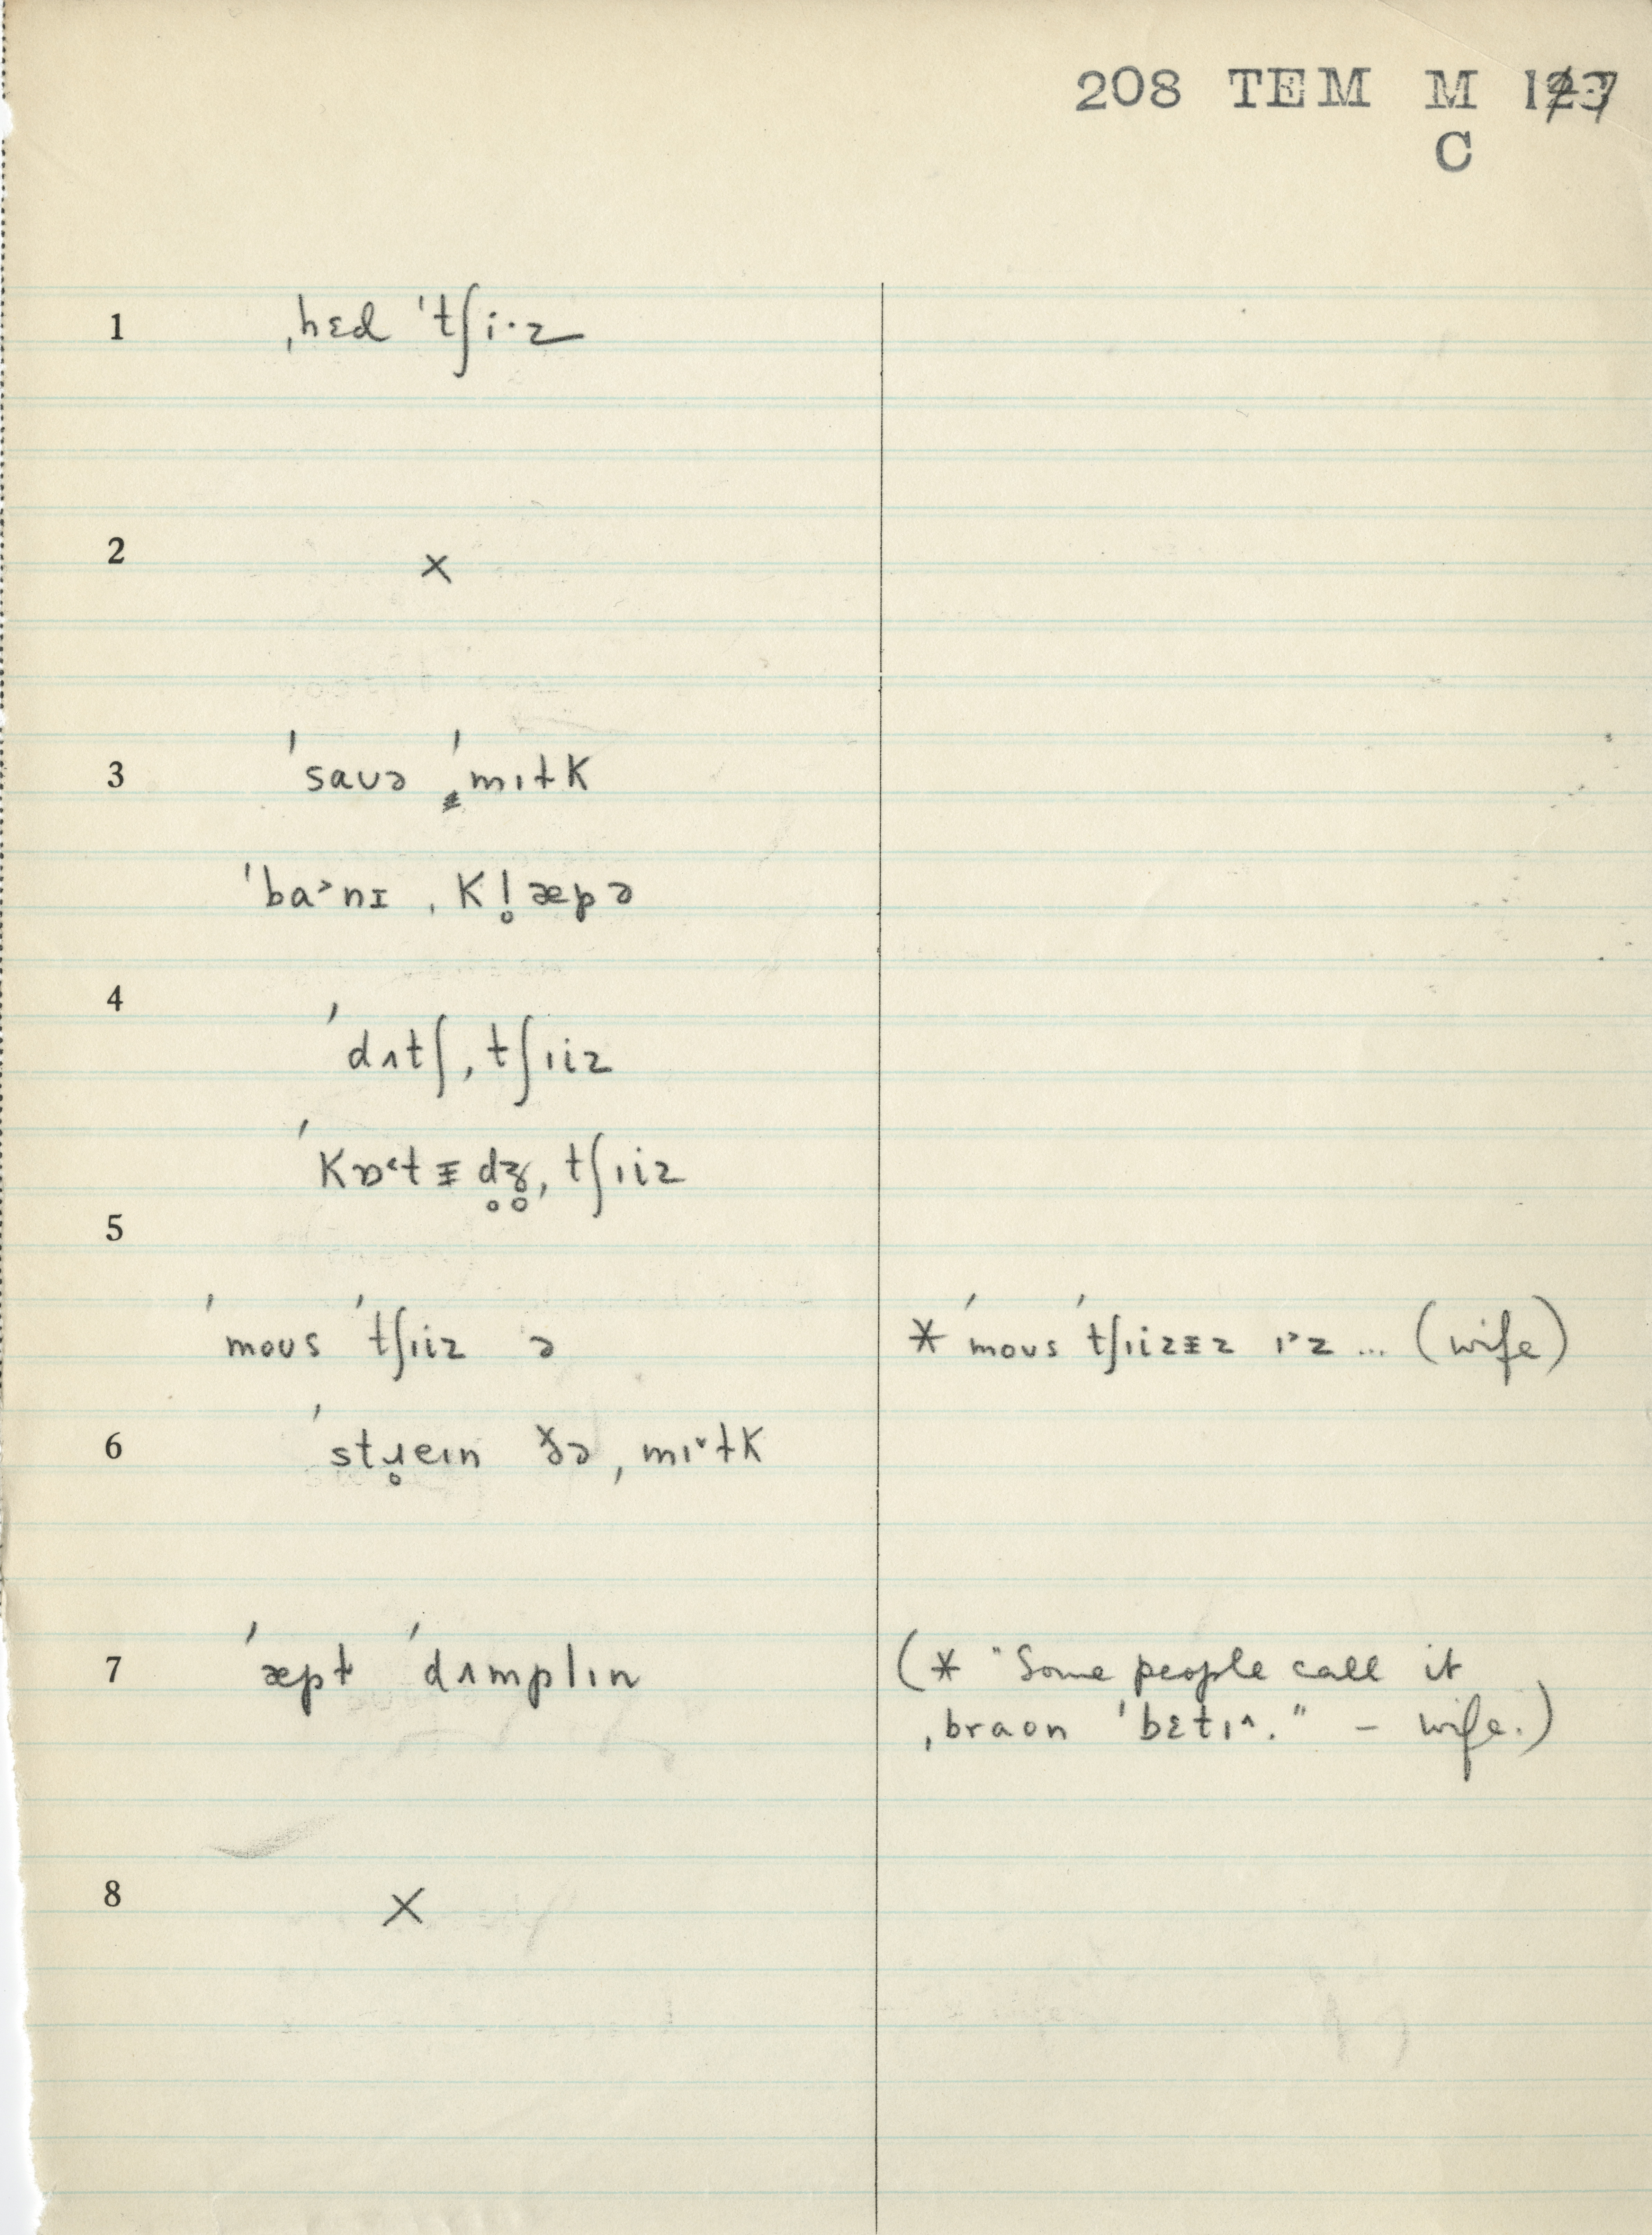 208 TEM M
C
1 ˌhɛd ˈtʃi·z
2 ×
3 ˈsaʊə ˈmɪɫk
ˈba˃nɪ ˌkl̥æpə
4
ˈdʌtʃˌtʃɪiz
ˈkɒ˂tᵻd̥ʒ̊ˌtʃɪiz
5
ˈmoʊs ˈtʃɪiz ə * ˈmoʊs ˈtʃɪizᵻz ɪ˃z ... (wife)
6 ˈstɹ̥eɪn ðə ˌmɪ˅ɫk
7 ˈæpɫ ˈdʌmplɪn (* "Some people call it
ˌbraon ˈbɛtɪ^." – wife.)
8 ×